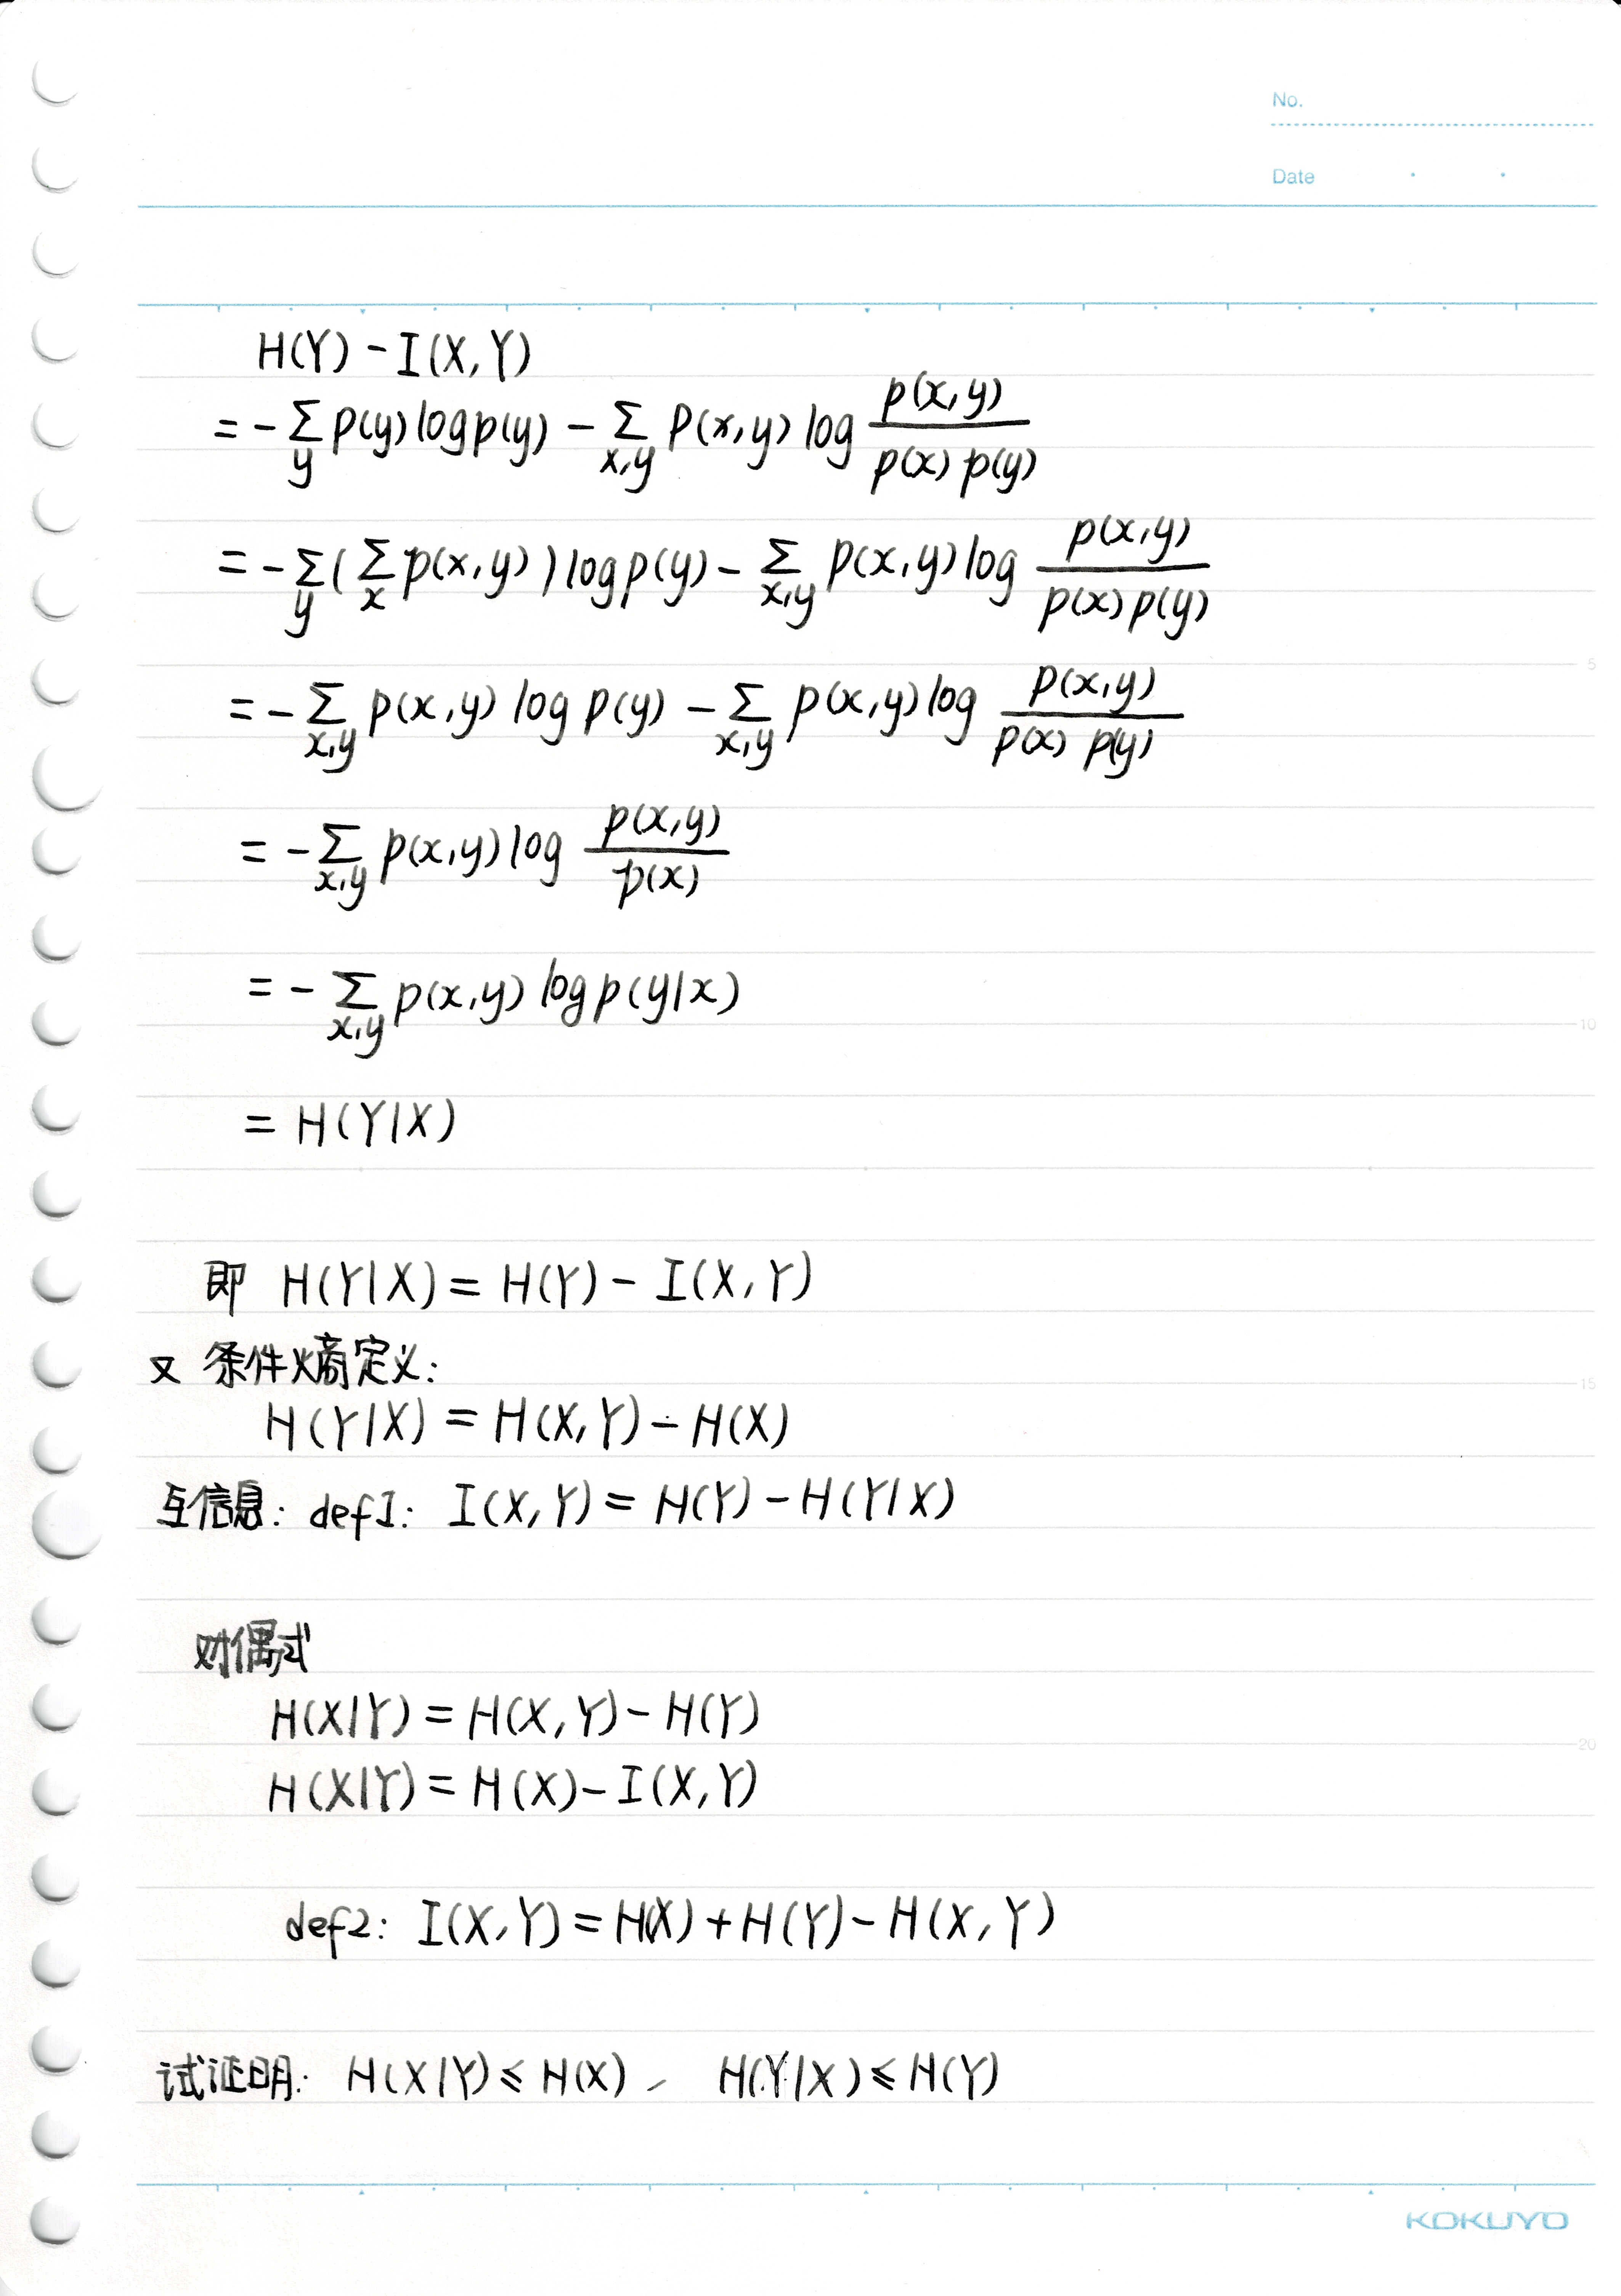 No.
Date
H(Y) - I(X, Y)
= - ∑_y p(y) log p(y) - ∑_{x,y} p(x,y) log \frac{p(x,y)}{p(x) p(y)}
= - ∑_y ( ∑_x p(x,y) ) log p(y) - ∑_{x,y} p(x,y) log \frac{p(x,y)}{p(x) p(y)}
= - ∑_{x,y} p(x,y) log p(y) - ∑_{x,y} p(x,y) log \frac{p(x,y)}{p(x) p(y)}
= - ∑_{x,y} p(x,y) log \frac{p(x,y)}{p(x)}
= - ∑_{x,y} p(x,y) log p(y|x)
= H(Y|X)
即 H(Y|X) = H(Y) - I(X, Y)
又 条件熵定义:
H(Y|X) = H(X, Y) - H(X)
互信息: def1: I(X, Y) = H(Y) - H(Y|X)
对偶式
H(X|Y) = H(X, Y) - H(Y)
H(X|Y) = H(X) - I(X, Y)
def2: I(X, Y) = H(X) + H(Y) - H(X, Y)
试证明: H(X|Y) ⩽ H(X) , H(Y|X) ⩽ H(Y)
5
10
15
20
KOKUYO